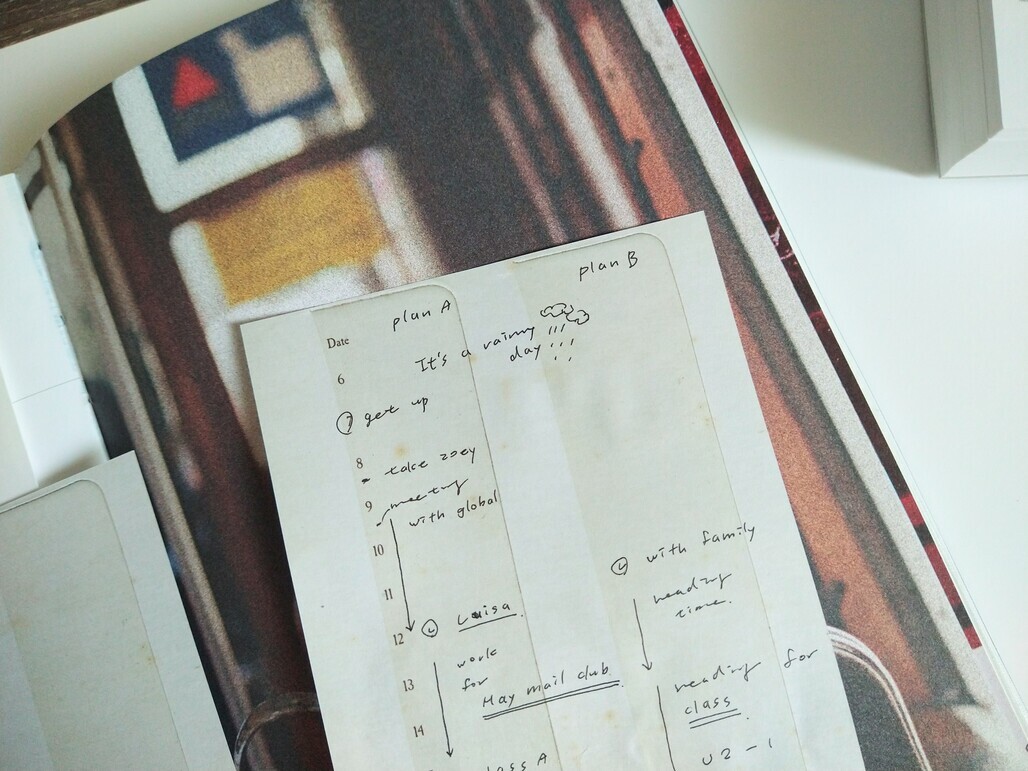 plan A
plan B
Date
It's a rainy
day
6
7 get up
8
- take zoey
9
- meeting
with global
10
11
12
L Luisa.
work
for
May mail club.
13
14
class A
L with family
reading
time.
reading for
class.
U2-1